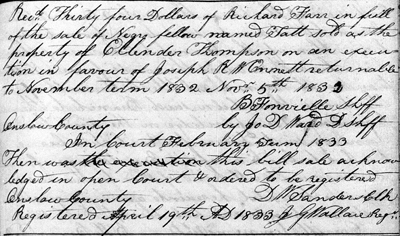 Recd. Thirty four Dollars of Richard Farr in full
of the sale of Negro fellow named Tatt sold as the
property of Ellender Thompson on an execu-
tion in favour of Joseph R W Ennett returnable
to November term 1832 Novr. 5th. 1832
B Fonvielle Shff
Onslow County by Jo D Ward D Shff
In Court February Term 1833
Then was this bill sale acknow
ledged in open Court & ordered to be registered
Onslow County D W Sanders Clk
Registered April 19th AD 1833 J G Wallace Regr.